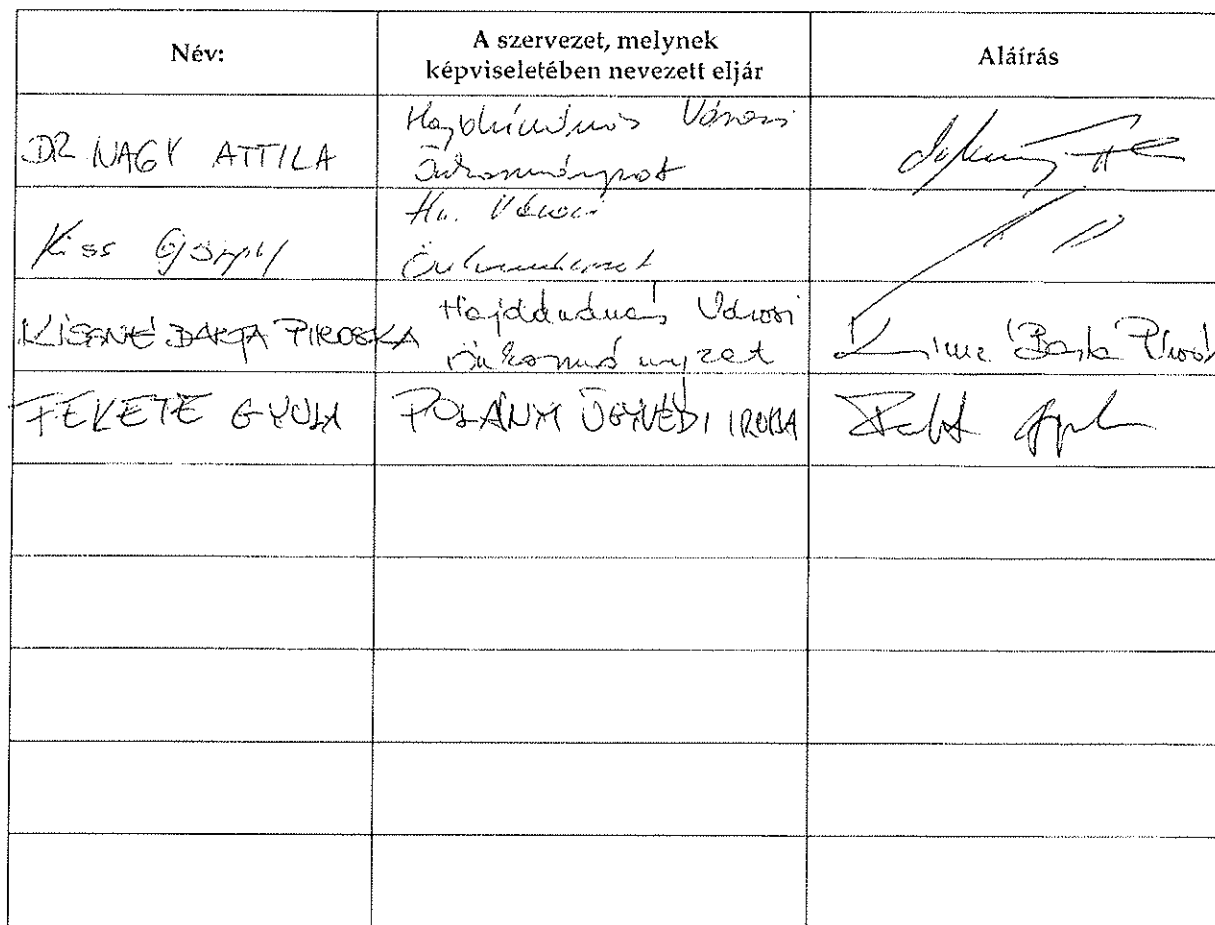 Név:
A szervezet, melynek
képviseletében nevezett eljár
Aláírás
DR NAGY ATTILA
Hajdúnánás Városi
Önkormányzat
Kiss György
Hn. Városi
Önkormányzat
KISSNÉ BARTA PIROSKA
Hajdúnánás Városi
Önkormányzat
FEKETE GYULA
POLÁNYI ÜGYVÉDI IRODA